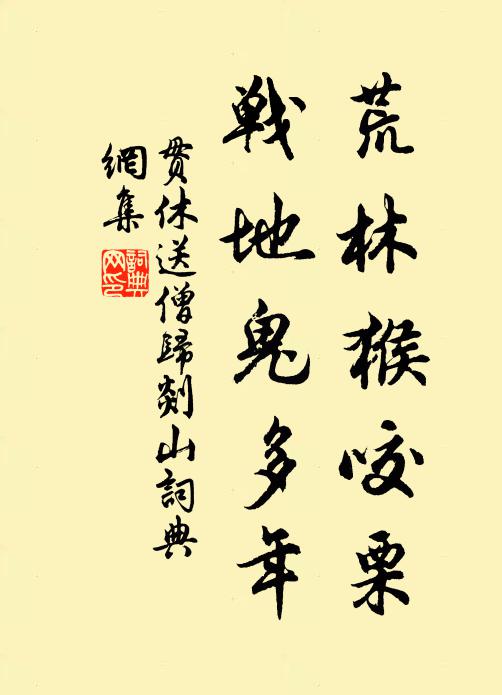 荒林猴咬栗
戰地鬼多年
貫休送僧歸剡山詞典
網集
詞典網印